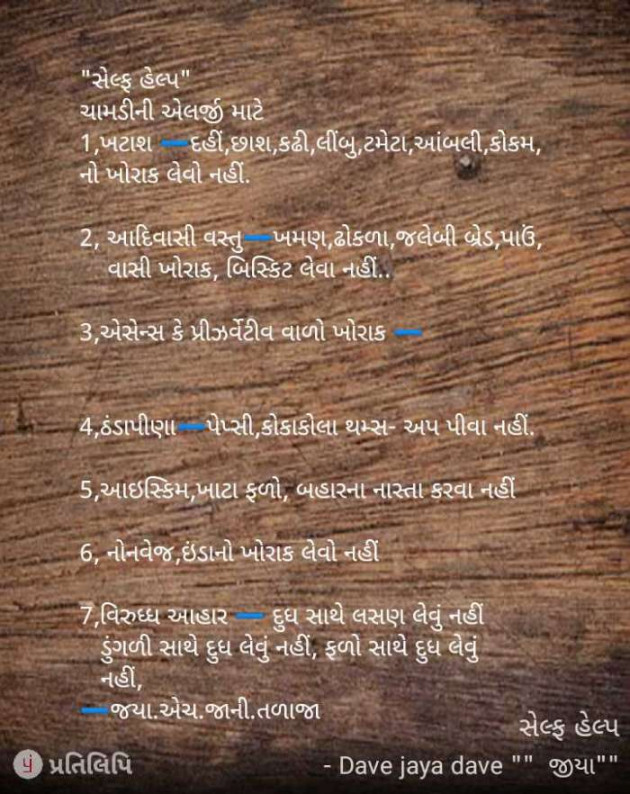 "સેલ્ફ હેલ્પ"
ચામડીની એલર્જી માટે
1,ખટાશ ➖દહીં,છાશ,કઢી,લીંબુ,ટમેટા,આંબલી,કોકમ,
નો ખોરાક લેવો નહીં.
2, આદિવાસી વસ્તુ➖ખમણ,ઢોકળા,જલેબી બ્રેડ,પાઉં,
વાસી ખોરાક, બિસ્કિટ લેવા નહીં..
3,એસેન્સ કે પ્રીઝર્વેટીવ વાળો ખોરાક ➖
4,ઠંડાપીણા➖પેપ્સી,કોકાકોલા થમ્સ- અપ પીવા નહીં.
5,આઇસ્ક્રિમ,ખાટા ફળો, બહારના નાસ્તા કરવા નહીં
6, નોનવેજ,ઇંડાનો ખોરાક લેવો નહીં
7,વિરુધ્ધ આહાર ➖ દુધ સાથે લસણ લેવું નહીં
ડુંગળી સાથે દુધ લેવું નહીં, ફળો સાથે દુધ લેવું
નહીં,
➖જયા.એચ.જાની.તળાજા
સેલ્ફ હેલ્પ
પ્રતિલિપિ
- Dave jaya dave "" જીયા""